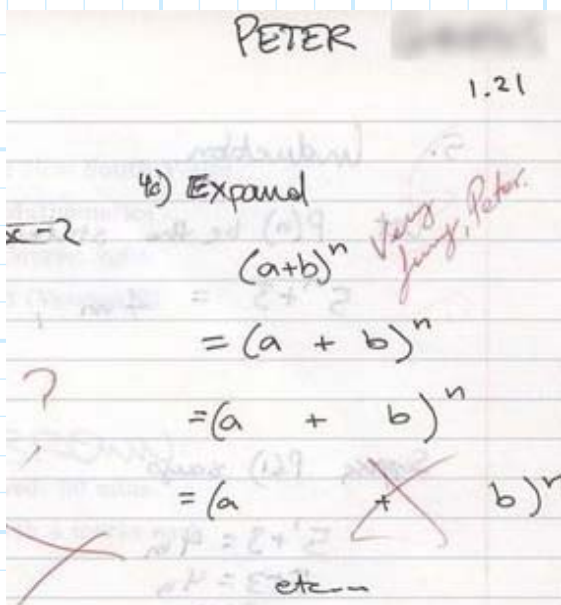 PETER
1.21
4c) Expand
x-2
Very funny, Peter.
(a+b)ⁿ
= (a + b)ⁿ
?
=(a + b)ⁿ
= (a + b)ⁿ
etc...